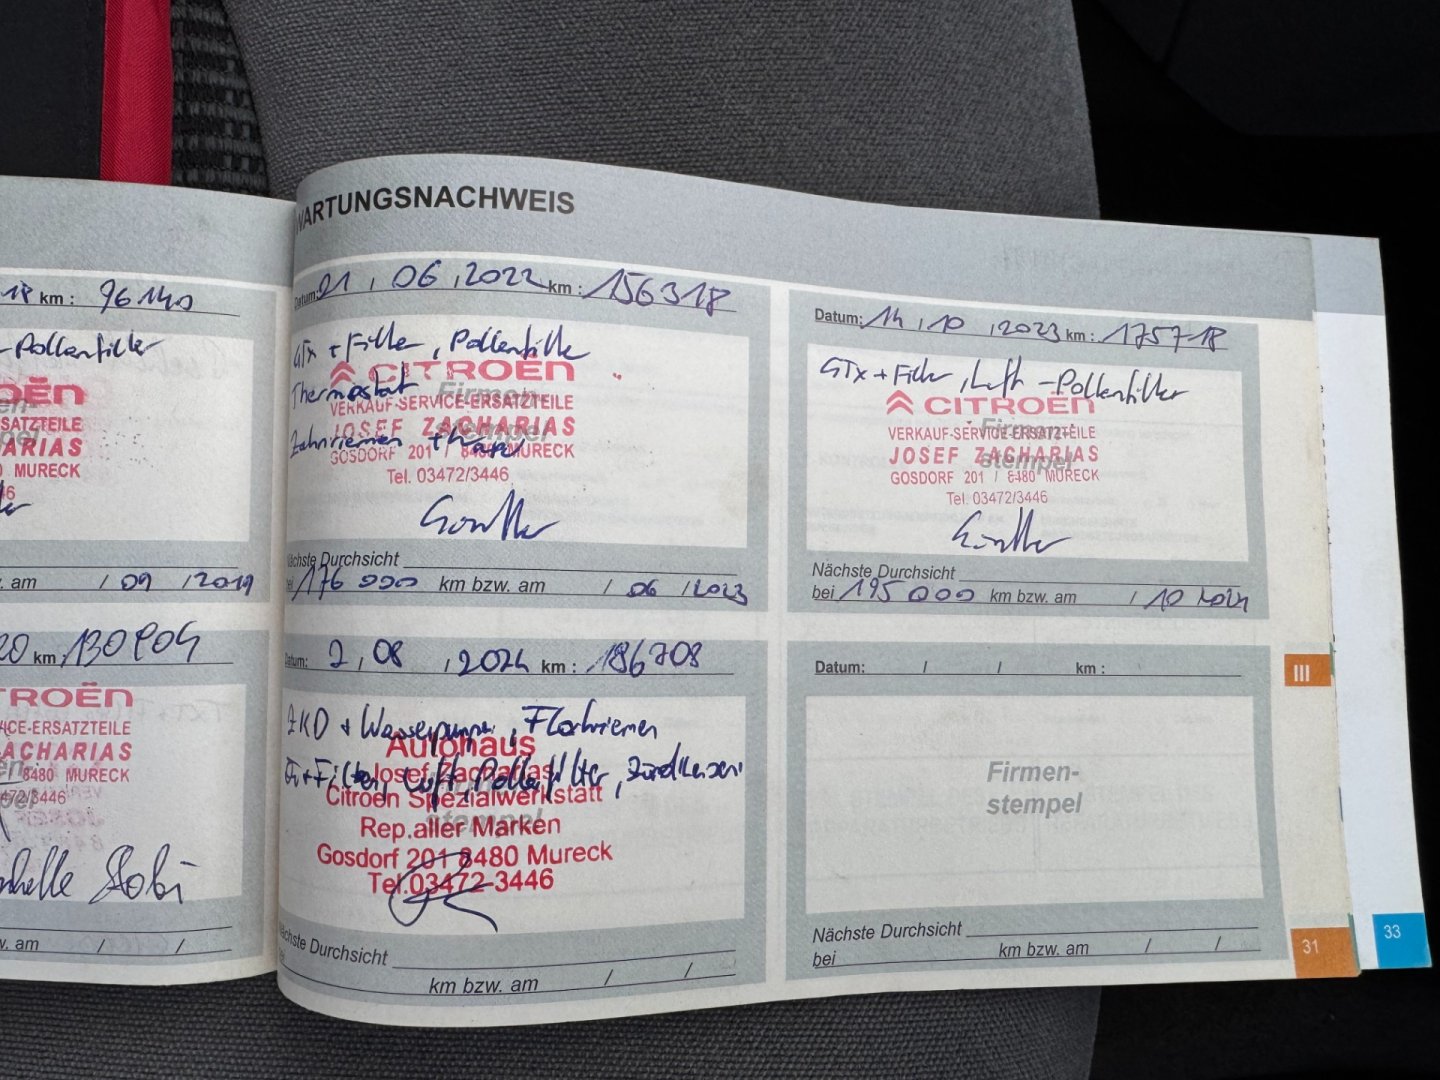 WARTUNGSNACHWEIS
18 km : 96140
-Pollenfilter
OËN
SATZTEILE
ARIAS
MURECK
. am / 09 / 2019
20 km 130804
TROËN
ICE-ERSATZTEILE
ZACHARIAS
8480 MURECK
472/3446
. am / /
Datum: 01 , 06 , 2022 km : 156318
GTx + Filter , Pollenfilter
CITROËN
Thermostat
Firmen-
VERKAUF-SERVICE-ERSATZTEILE
JOSEF ZACHARIAS
stempel
Zahnriemen +
GOSDORF 201 / 8480 MURECK
Tel. 03472/3446
Nächste Durchsicht
176 000 km bzw. am / 06 / 2023
Datum: 14 , 10 , 2023 km : 175718
GTx + Filter , Luft -Pollenfilter
CITROËN
Firmen-
VERKAUF-SERVICE-ERSATZTEILE
JOSEF ZACHARIAS
stempel
GOSDORF 201 / 8480 MURECK
Tel. 03472/3446
Nächste Durchsicht
bei 195 000 km bzw. am / 10 2024
Datum: 2 , 08 , 2024 km : 186708
ZKD + Wasserpumpe , Flachriemen
Autohaus
+ Filter, Luft, Pollenfilter , Zündkerzen
Josef Zacharias
Citroen Spezialwerkstatt
stempel
Rep.aller Marken
Gosdorf 201 8480 Mureck
Tel.03472-3446
Nächste Durchsicht
km bzw. am / /
Datum: / / km :
Firmen-
stempel
Nächste Durchsicht
bei km bzw. am / /
III
31
33